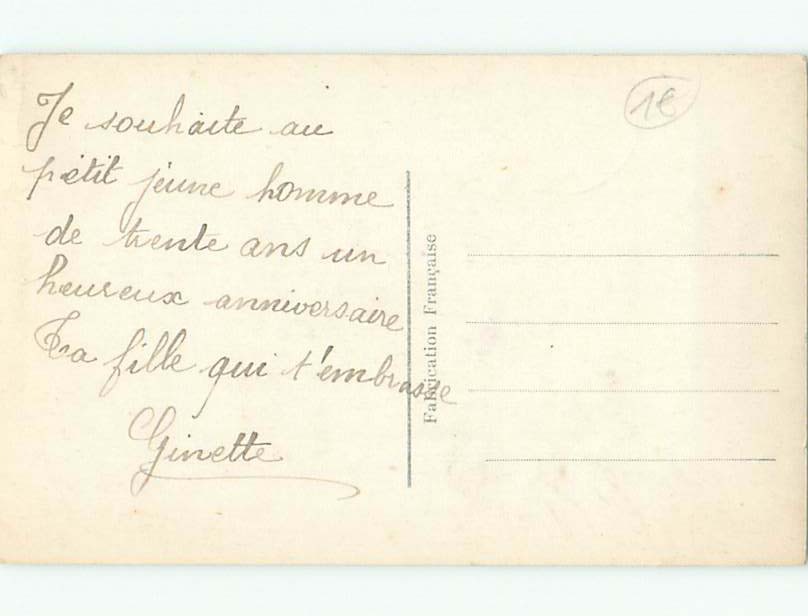 Je souhaite au
petit jeune homme
de trente ans un
heureux anniversaire
Ta fille qui t'embrasse
Ginette
Fabrication Française
1€